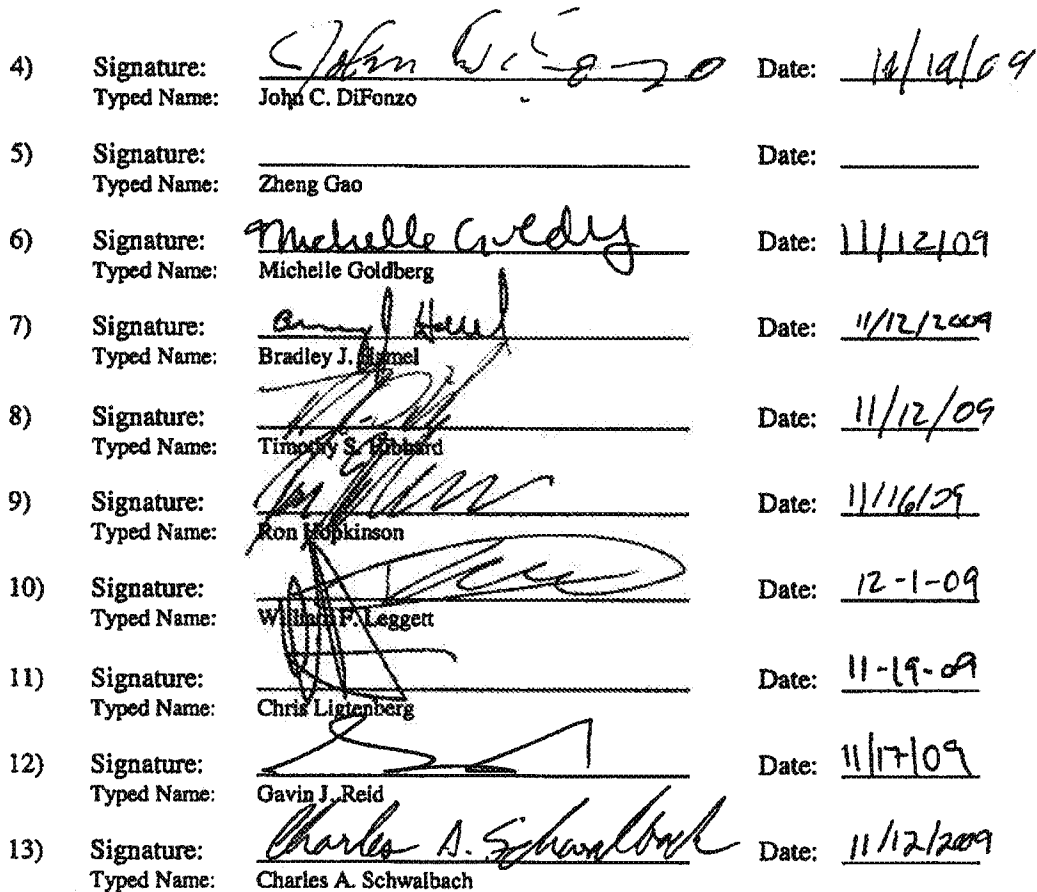 4) Signature: John DiFonzo Date: 11/19/09
Typed Name: John C. DiFonzo
5) Signature: Date:
Typed Name: Zheng Gao
6) Signature: Michelle Goldberg Date: 11/12/09
Typed Name: Michelle Goldberg
7) Signature: Date: 11/12/2009
Typed Name: Bradley J. Hamel
8) Signature: Date: 11/12/09
Typed Name: Timothy S. Hibbard
9) Signature: Date: 11/16/09
Typed Name: Ron Hopkinson
10) Signature: Date: 12-1-09
Typed Name: William F. Leggett
11) Signature: Date: 11-19-09
Typed Name: Chris Ligtenberg
12) Signature: Date: 11/17/09
Typed Name: Gavin J. Reid
13) Signature: Charles A. Schwalbach Date: 11/12/2009
Typed Name: Charles A. Schwalbach